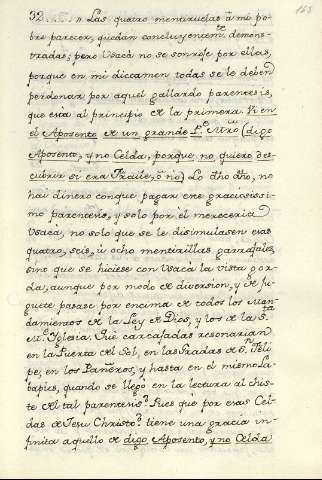 163
32 " Las quatro mentiruelas â mi po-
bre parecer, quedan concluyentemte demons-
tradas; pero Usacà no se sonroje por ellas,
porque en mi dictamen todas se le deben
perdonar por aquel gallardo parentesis,
que està al principio de la primera. Vi en
el Aposento de un grande Pe Mro (digo
Aposento, y no Celda, porque no quiero des-
cubrir si era Fraile, ô no) Lo dho dho, no
hai dinero conque pagar ese graciosissi-
mo parentesis, y solo por el mereceria
Usacà, no solo que se le disimulasen esas
quatro, seis, ù ocho mentirillas garrafales,
sino que se hiciese con Usacà la vista gor-
da, aunque por modo de diversion, y de ju-
guete pasase por encima de todos los Man-
damientos de la Ley de Dios, y los de la Sta
Me Iglesia. Què carcajadas resonarian
en la Puerta del Sol, en las Gradas de Sn Feli-
pe, en los Pañeros, y hasta en el mismo La-
bapies, quando se llegò en la lectura al chis-
te del tal parentesis? Pues que por esas Cel-
das de Jesu Christo? tiene una gracia in-
finita aquello de digo Aposento, y no Celda